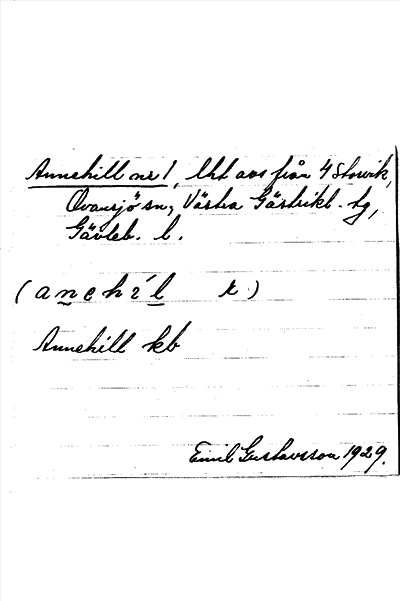 Annehill nr 1, lht avs från 4 Storvik,
Ovansjö sn, Västra Gästrikl. tg,
Gävleb. l.
(anehíl k)
Annehill kb
Emil Gustavsson 1929.